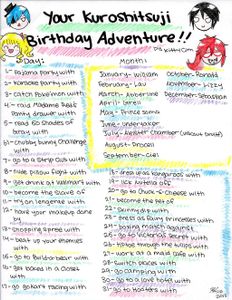 Your Kuroshitsuji
Birthday Adventure!!
Day:
1- Pajama party with
2- Karaoke party with
3- Catch Pokemon with
4- raid Madame Red's
panty drawer with
5- read 50 Shades of
Gray with
6- chubby bunny challenge
with
7- go to a strip club with
8- nude pillow fight with
9- get drunk at Walmart with
10- become the slave of
11- try on lingerie with
12- have your makeup done
by
13- shopping spree with
14- beat up your enemies
with
16- go to Build-a-bear with
16- get locked in a closet
with
17- go go kart racing with
Month:
January- William
February- Lau
March- Abberline
April- Grell
May- Prince Soma
June- Undertaker
July- Aleister Chamber (Viscount Druitt)
August- Pluto
September- Ciel
October- Ronald
November- Lizzy
December- Sebastian
18- dress up as
19- lick Nutella off
20- go to Chuck-e-Cheese with
21- become the pet of
22- skinny dip with
23- dress as fairy princesses with
24- boxing match against
25- go to Victoria's Secret with
26- tip toe through the tulips with
27- work at a maid cafe with
28- switch places with
29- go camping with
30- go to a love hotel with
31- go to Hooters with